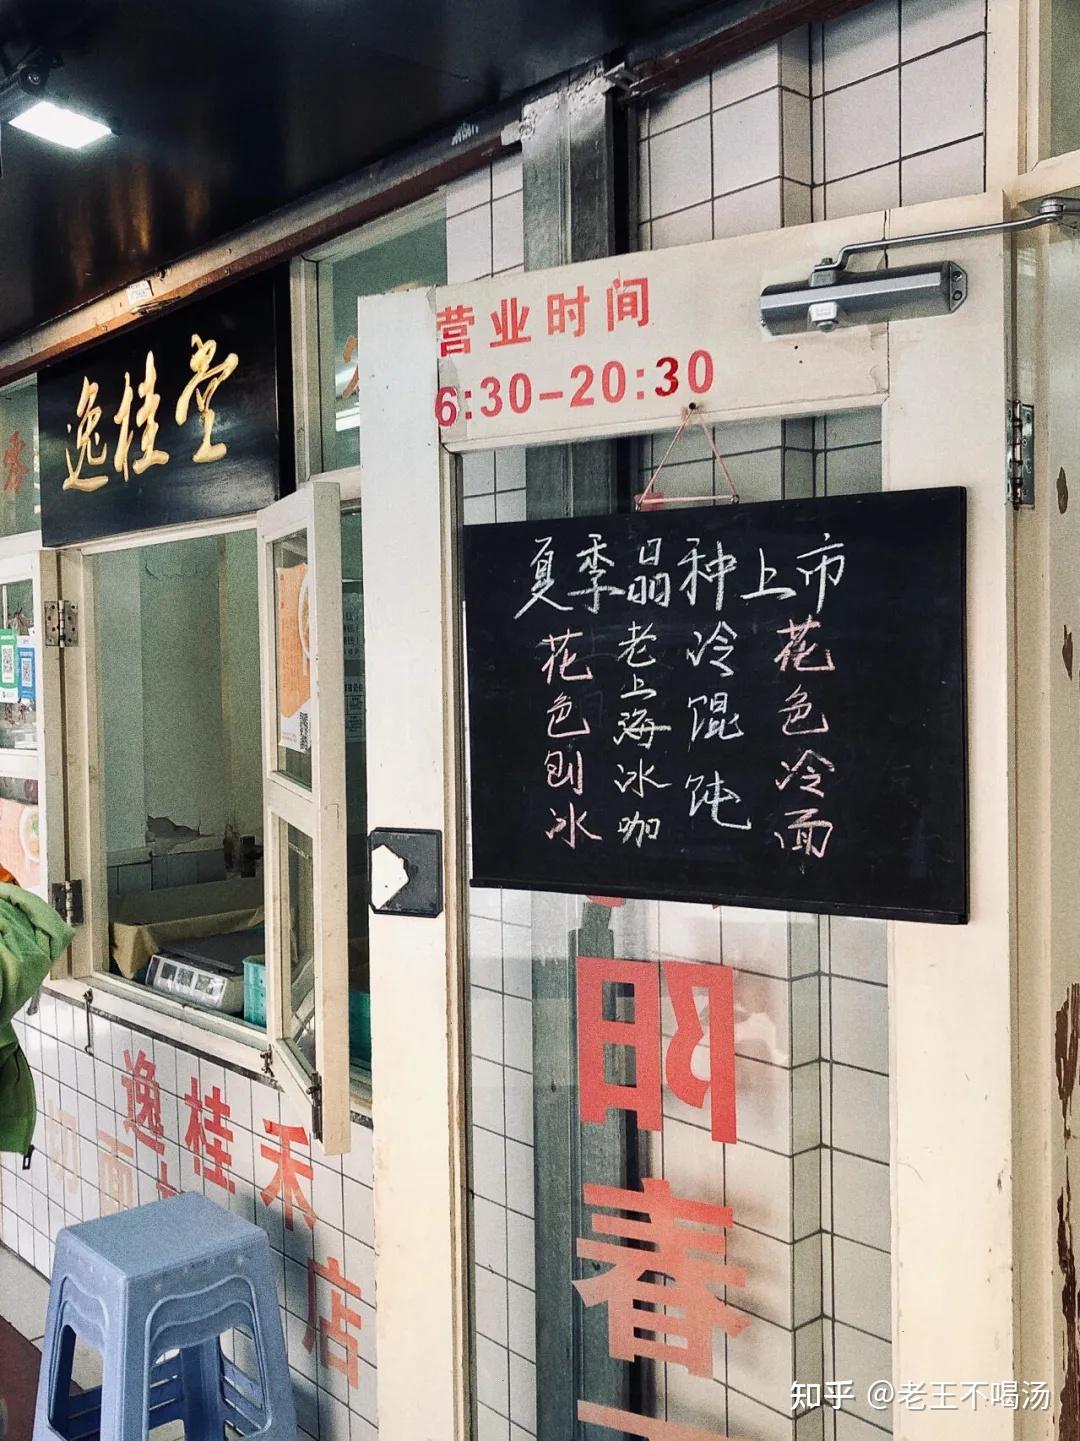 逸桂堂
营业时间
6:30-20:30
夏季品种上市
花色冷面
冷馄饨
老上海冰咖
花色刨冰
阳春
逸桂禾
切面
店
知乎 @老王不喝汤